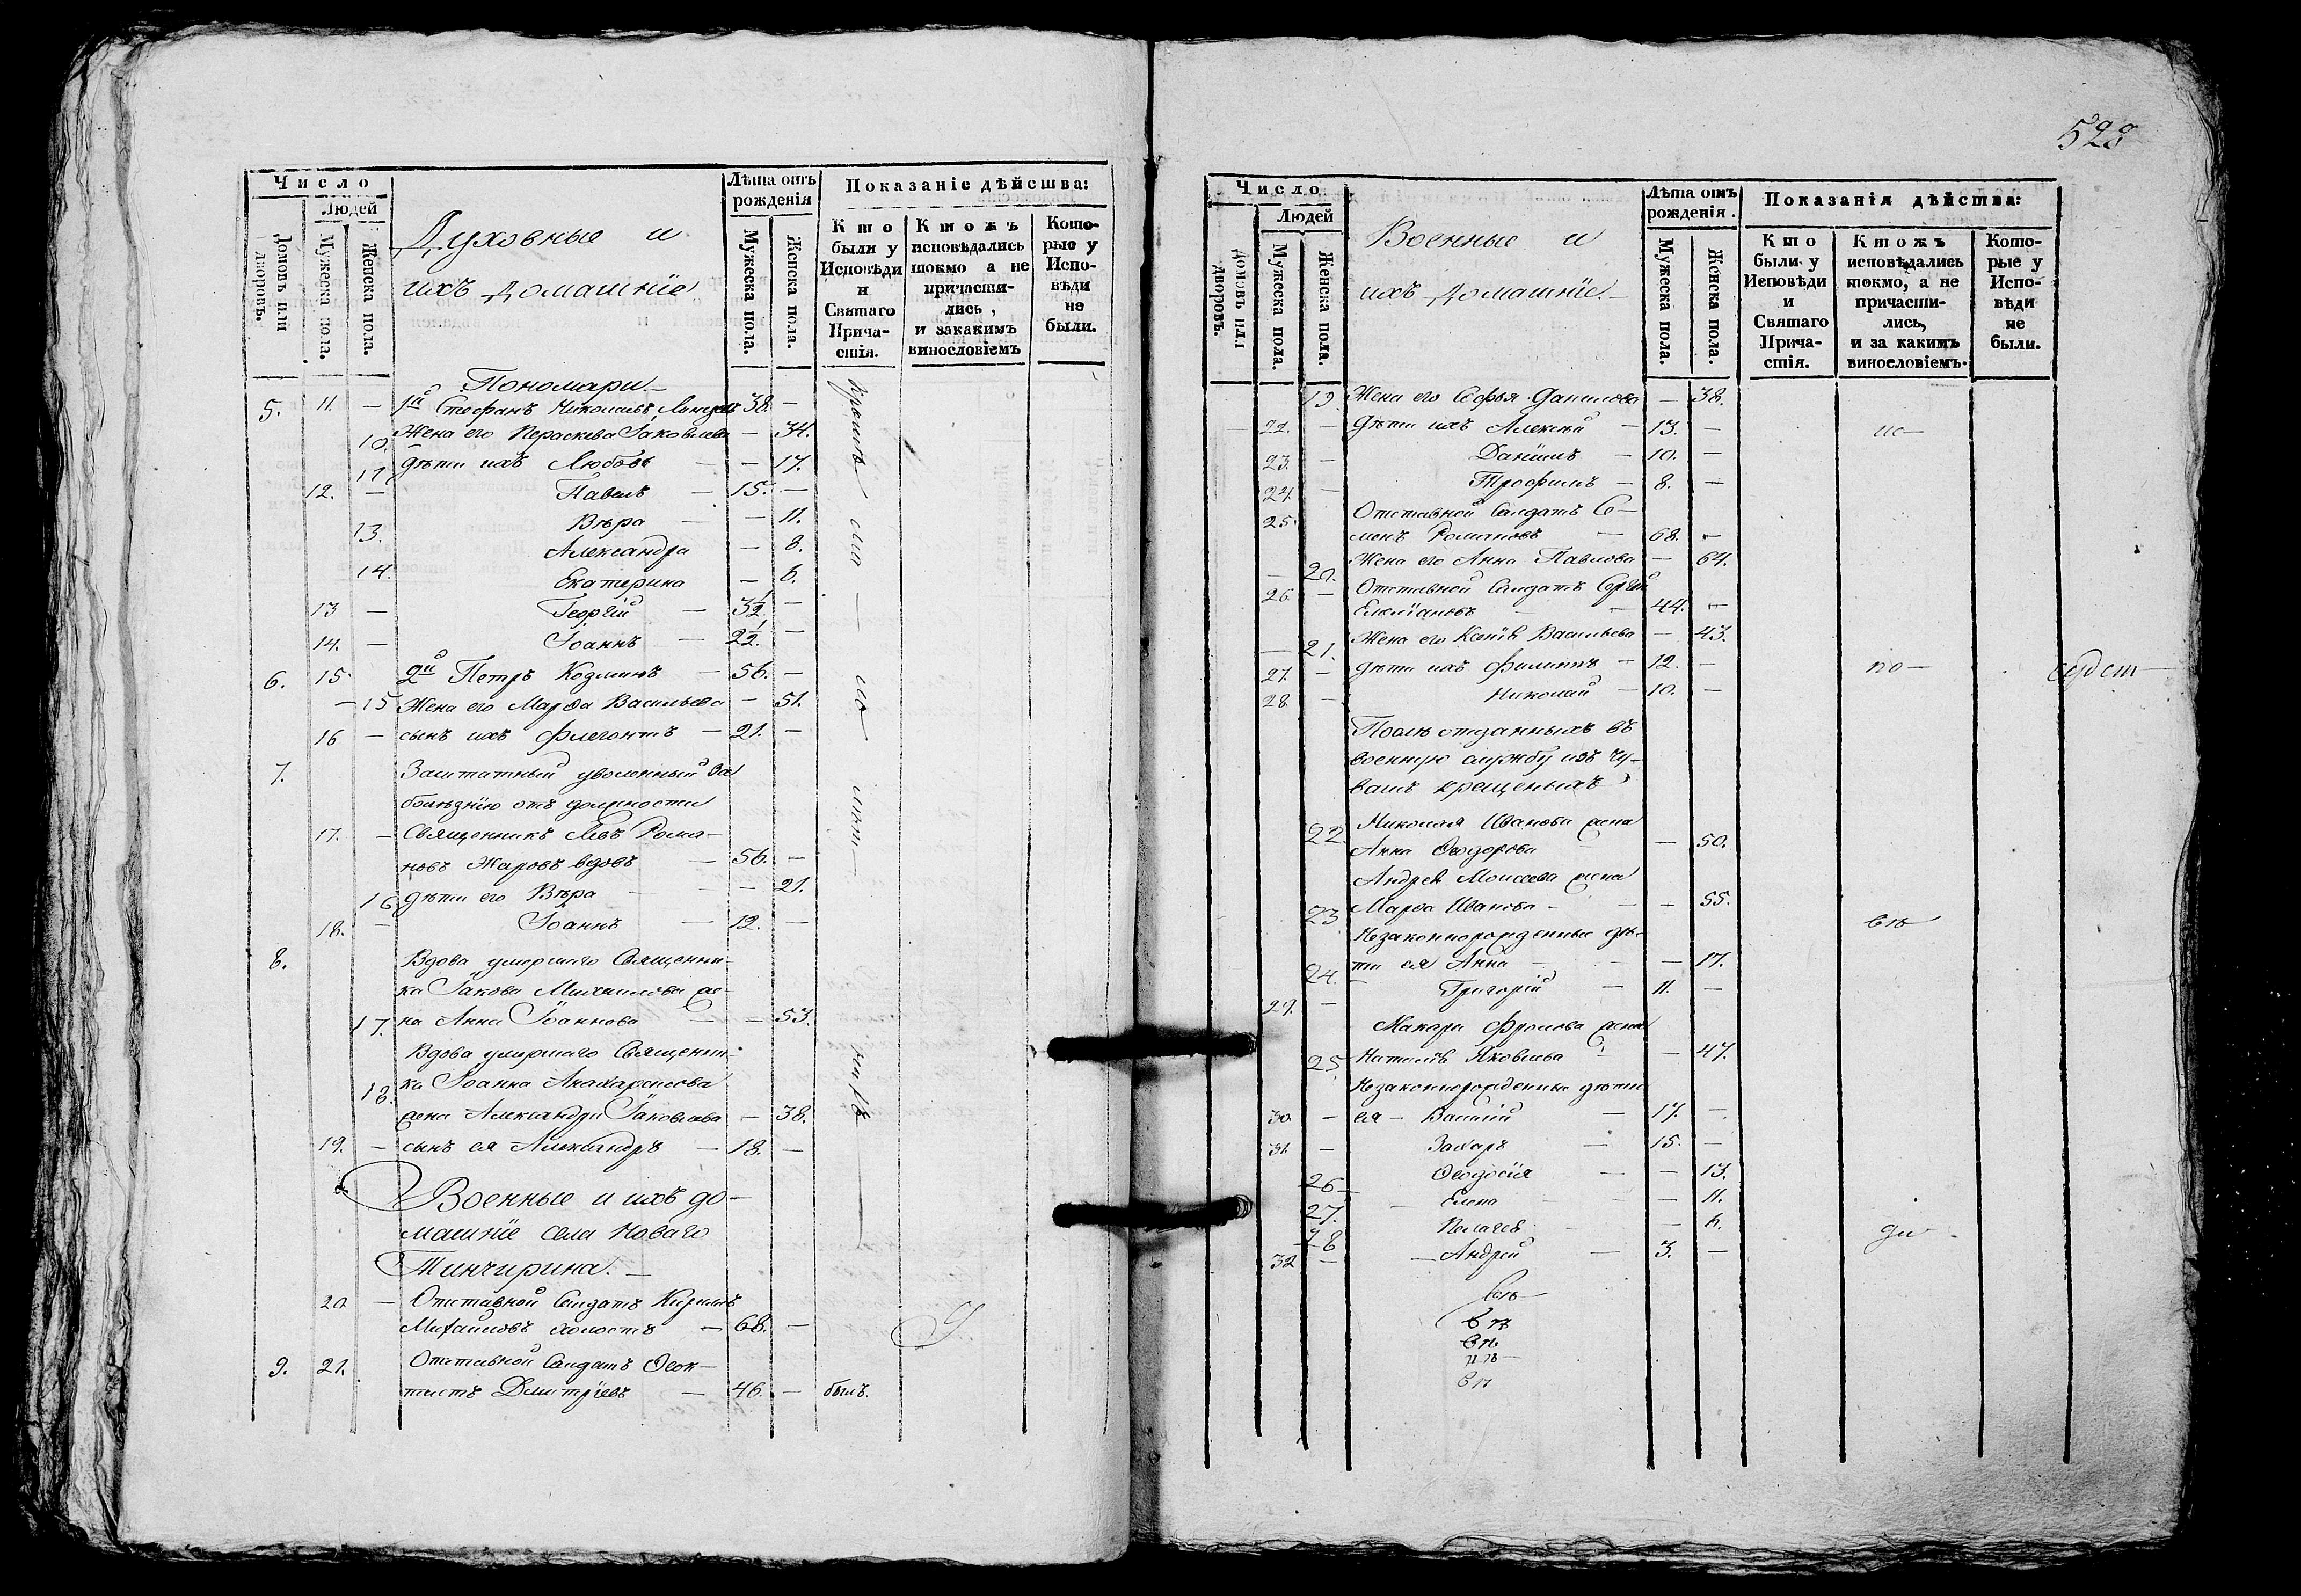 Число
Людей
Домовъ или дворовъ.
Мужеска пола.
Женска пола.
Духовные и
ихъ домашнїе
Лѣта отъ рожденія
Мужеска пола.
Женска пола.
Показаніе дѣйства:
Кто были у Исповѣди и Святаго Прича-стія.
Ктожъ исповѣдались токмо а не причасти-лись, и закакимъ винословіемъ
Кото-рые у Испо-вѣди не были.
Пономари
5. 11. — 1й Стефанъ Николаевъ 38. —
10. Жена его Параскева Іаковлева — 34.
11 Дѣти ихъ Любовь — 17.
12. — Павелъ — 15. —
Вѣра — 11.
13. Александра — 8.
14. Екатерина — 6.
13 — Георгій — 3½ —
14. — Іоаннъ — 2½ —
6. 15 2й Петръ Козминъ — 56. —
— 15 Жена его Марѳа Васильева — 51.
16 — сынъ ихъ Флегонтъ — 21. —
7. Заштатный уволенный за
болѣзнію отъ должности
17. — Священникъ Левъ Рома-
новъ Жаровъ вдовъ — 56. —
16 Дѣти его Вѣра — — 21.
18. — Іоаннъ — 12. —
8. Вдова умершаго Священни-
ка Іакова Михаилова же-
17. на Анна Іоаннова — — 53.
Вдова умершаго Священни-
18. ка Іоанна
жена Александра Іаковлева — 38.
19. — сынъ ея Александръ — 18. —
Военные и ихъ до-
машнїе села Новаго
Тинчирина. —
20 — Отставной Солдатъ Кирилъ
Михаиловъ холостъ — 68. —
9. 21. Отставной Солдатъ Ѳеок-
тистъ Дмитріевъ — 46. — былъ.
528
Число
Людей
домовъ или дворовъ.
Мужеска пола.
Женска пола.
Военные и
ихъ домашнїе. —
Лѣта отъ рожденія.
Мужеска пола.
Женска пола.
Показанія дѣйства:
Кто были у Исповѣди и Святаго Прича-стія.
Ктожъ исповѣдались токмо, а не причасти-лись, и за какимъ винословіемъ.
Кото-рые у Испо-вѣди не были.
19. Жена его Софья Данилова — 38.
22. — Дѣти ихъ Алексѣй — 13. —
23. — Даніилъ — 10. —
24. — Трофимъ — 8. —
25. Отставной Солдатъ Се-
менъ Романовъ — 68. —
— 20. Жена его Анна Павлова — 64.
26. — Отставной Солдатъ Сергѣй
44. —
— 21. Жена его Ксенія Васильева — 43.
27. — дѣти ихъ Филиппъ — 12. — по —
28. — Николай — 10. —
Послѣ отданныхъ въ
военную службу изъ Чу-
вашъ крещеныхъ
Николая Иванова жена
22. Анна Ѳеодорова — 50.
Андрея Моисеева жена
23 Марѳа Иванова — — 55.
Незаконнорожденные дѣ-
24. ти ея Анна — — 17.
29. — Григорій — 11. —
Макара Фролова жена
25. Наталія Яковлева — 47.
Незаконнорожденные дѣти
30. — ея — Василій — 17. —
31. — Захаръ — 15. —
26 — Ѳеодосія — — 13.
27. Елена — — 11.
28 Пелагея — 6.
32 — — Андрей — 3. —